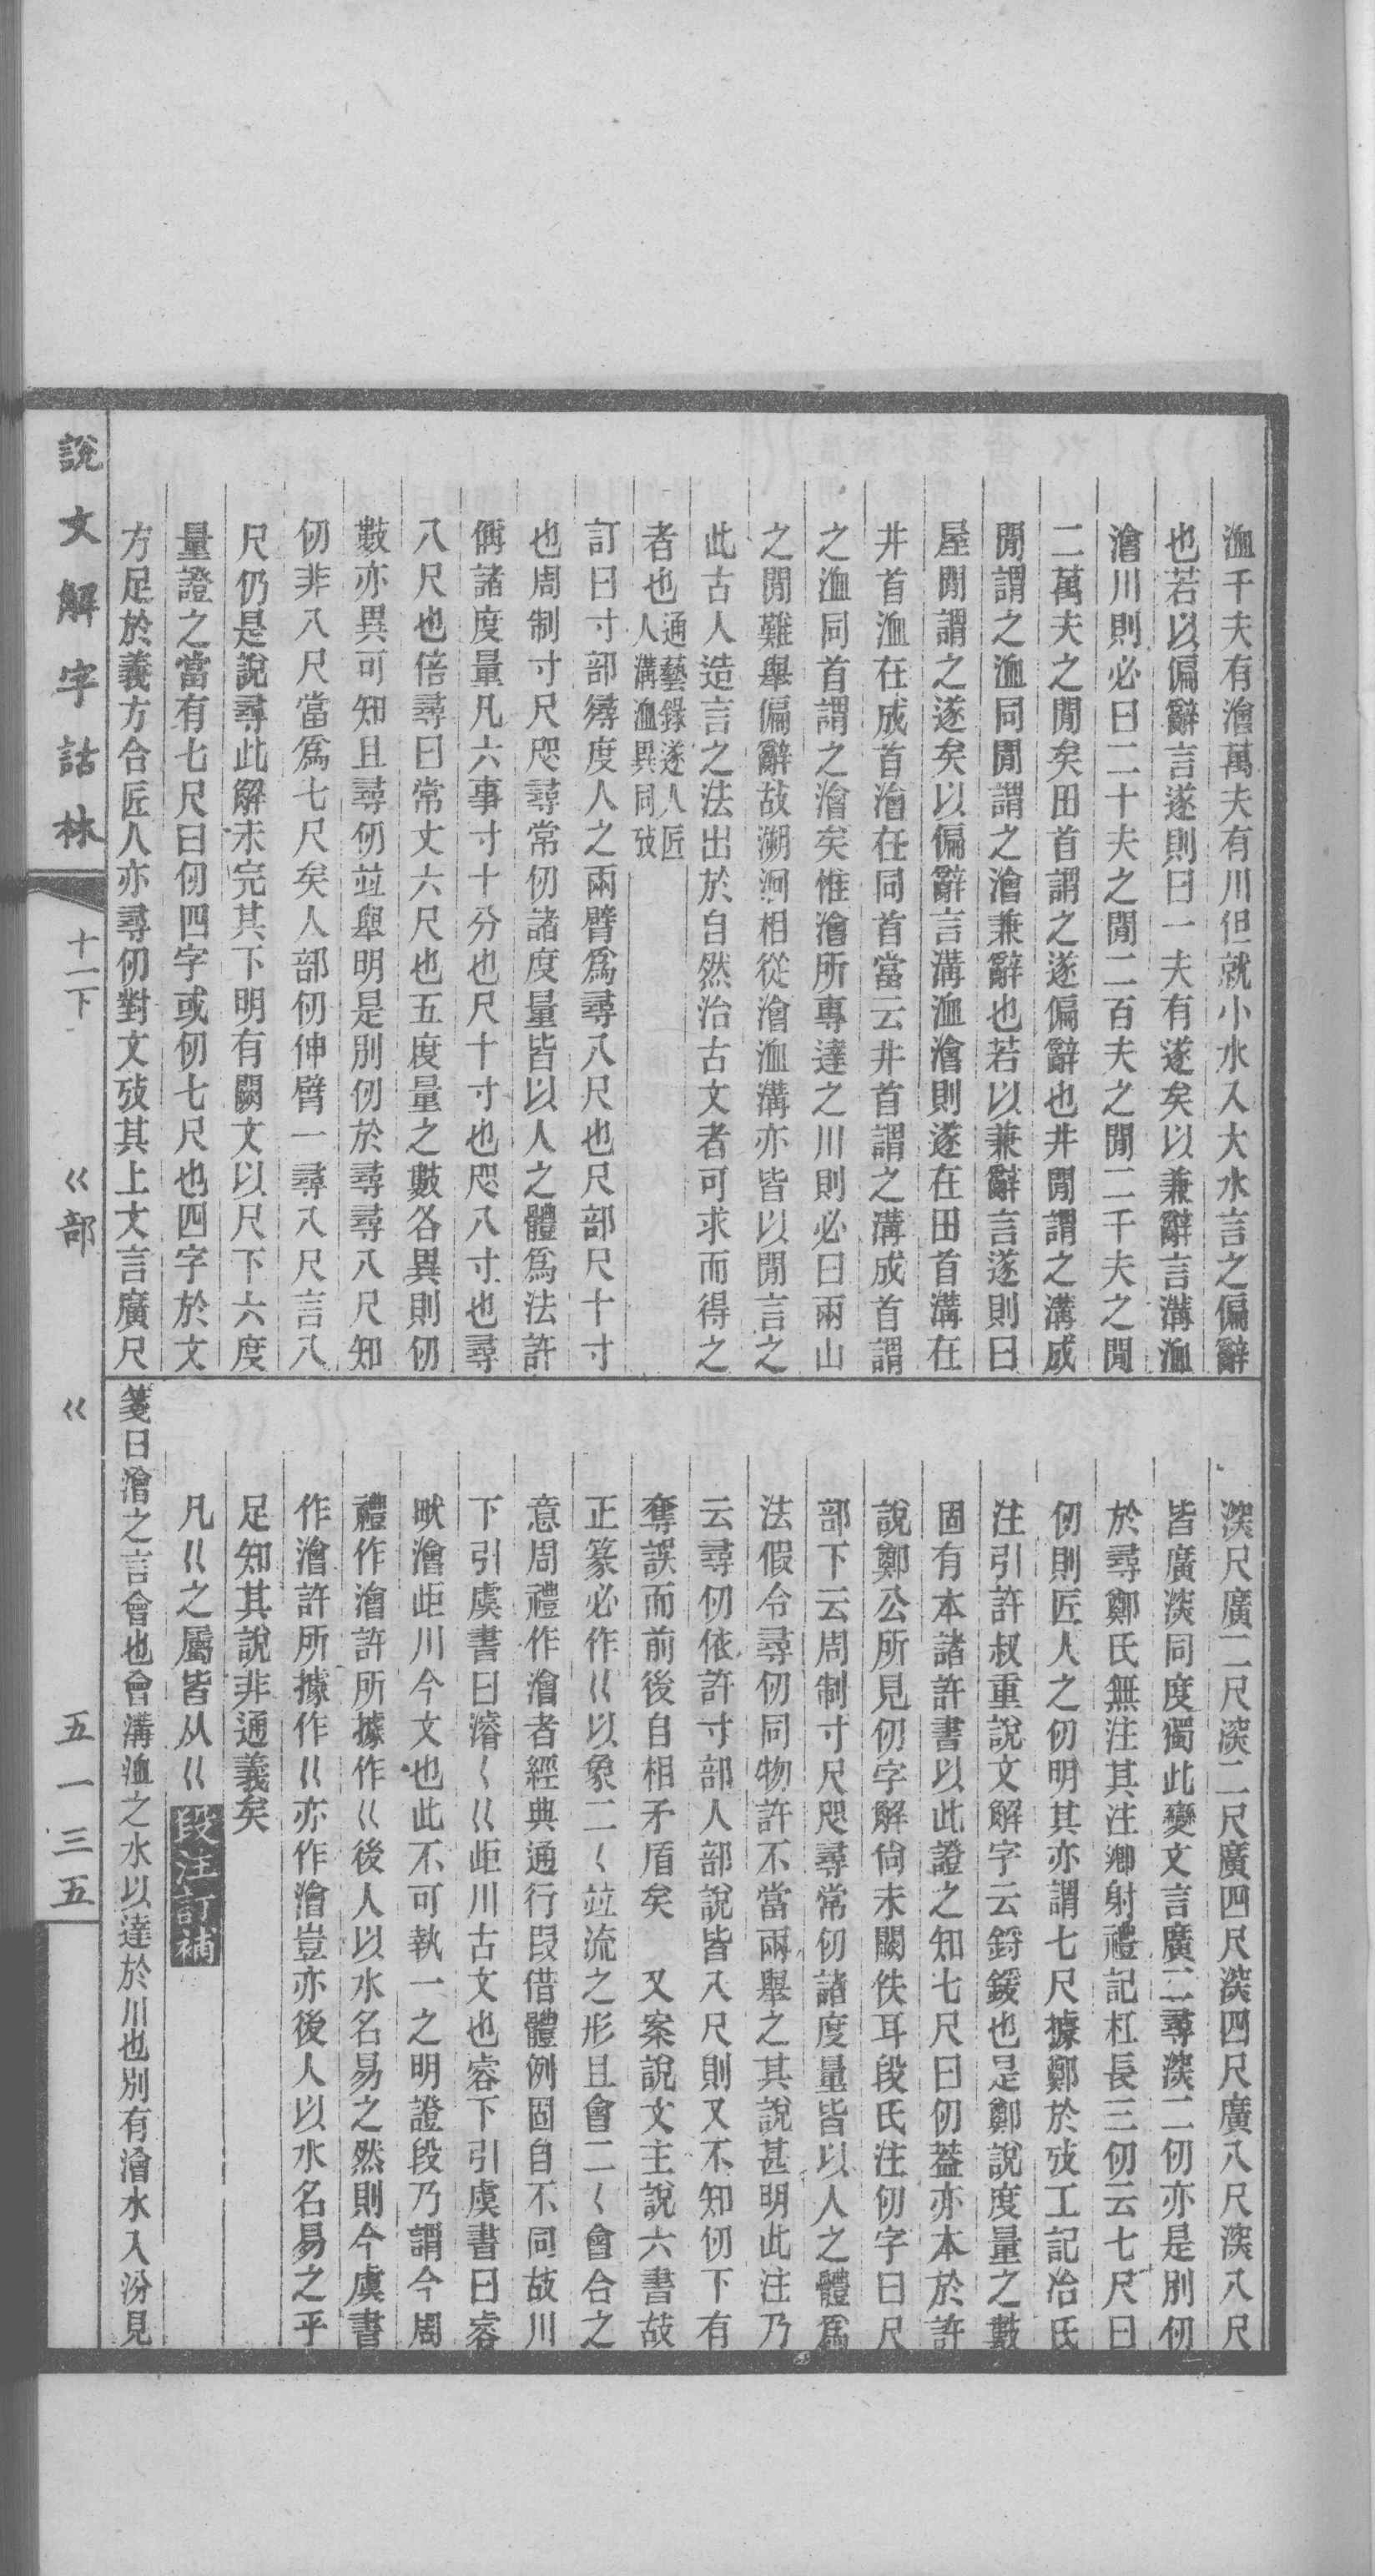 洫千夫有澮萬夫有川但就小水入大水言之偏辭
也若以偏辭言遂則曰一夫有遂矣以兼辭言溝洫
澮川則必曰二十夫之閒二百夫之閒二千夫之閒
二萬夫之閒矣田首謂之遂偏辭也井閒謂之溝成
閒謂之洫同閒謂之澮兼辭也若以兼辭言遂則曰
屋閒謂之遂矣以偏辭言溝洫澮則遂在田首溝在
井首洫在成首澮在同首當云井首謂之溝成首謂
之洫同首謂之澮矣惟澮所專達之川則必曰兩山
之閒難舉偏辭故溯洄相從澮洫溝亦皆以閒言之
此古人造言之法出於自然治古文者可求而得之
者也通藝錄遂人匠人溝洫異同攷
訂曰寸部㝷度人之兩臂爲尋八尺也尺部尺十寸
也周制寸尺咫尋常仞諸度量皆以人之體爲法許
偁諸度量凡六事寸十分也尺十寸也咫八寸也尋
八尺也倍尋曰常丈六尺也五度量之數各異則仞
數亦異可知且尋仞竝舉明是別仞於尋尋八尺知
仞非八尺當爲七尺矣人部仞伸臂一尋八尺言八
尺仍是說尋此解未完其下明有闕文以尺下六度
量證之當有七尺曰仞四字或仞七尺也四字於文
方足於義方合匠人亦尋仞對文攷其上文言廣尺
深尺廣二尺深二尺廣四尺深四尺廣八尺深八尺
皆廣深同度獨此變文言廣二尋深二仞亦是別仞
於尋鄭氏無注其注鄉射禮記杠長三仞云七尺曰
仞則匠人之仞明其亦謂七尺據鄭於攷工記冶氏
注引許叔重說文解字云鋝鍰也是鄭說度量之數
固有本諸許書以此證之知七尺曰仞葢亦本於許
說鄭公所見仞字解尙未闕佚耳段氏注仞字曰尺
部下云周制寸尺咫尋常仞諸度量皆以人之體爲
法假令尋仞同物許不當兩舉之其說甚明此注乃
云尋仞依許寸部人部說皆八尺則又不知仞下有
奪誤而前後自相矛盾矣　又案說文主說六書故
正篆必作巜以象二𡿨竝流之形且會二𡿨會合之
意周禮作澮者經典通行叚借體例固自不同故川
下引虞書曰濬𡿨巜歫川古文也睿下引虞書曰睿
畎澮歫川今文也此不可執一之明證段乃謂今周
禮作澮許所據作巜後人以水名易之然則今虞書
作澮許所據作巜亦作澮豈亦後人以水名易之乎
足知其說非通義矣
凡巜之屬皆从巜　段注訂補
箋曰澮之言會也會溝洫之水以達於川也別有澮水入汾見
說文解字詁林　十一下　巜部　巜　五一三五